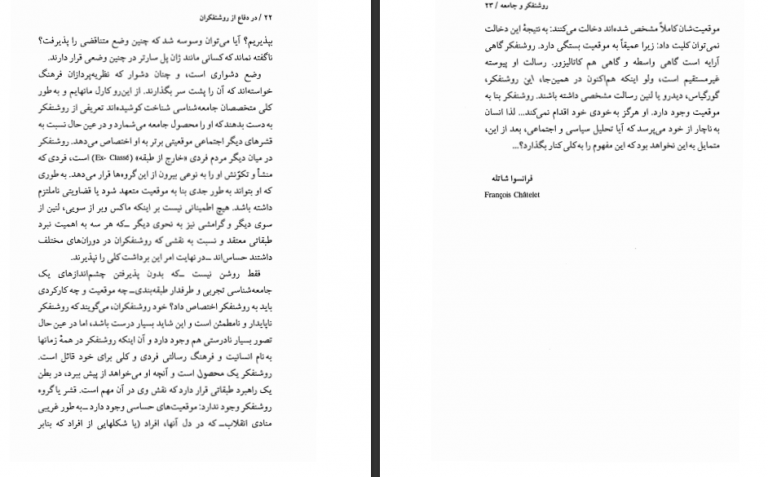 ۲۲ / در دفاع از روشنفکران
بپذیریم؟ آیا می‌توان وسوسه شد که چنین وضع متناقضی را پذیرفت؟
ناگفته نماند که کسانی مانند ژان پل سارتر در چنین وضعی قرار دارند.
وضع دشواری است، و چنان دشوار که نظریه‌پردازان فرهنگ
خواسته‌اند که آن را پشت سر بگذارند. از این‌رو کارل مانهایم و به‌طور
کلی متخصصان جامعه‌شناسی شناخت کوشیده‌اند تعریفی از روشنفکر
به دست بدهند که او را محصول جامعه می‌شمارد و در عین حال نسبت به
قشرهای دیگر اجتماعی موقعیتی برتر به او اختصاص می‌دهد. روشنفکر
در میان دیگر مردم فردی «خارج از طبقه» (Ex- Classé) است، فردی که
منشأ و تکوّنش او را به نوعی بیرون از این گروه‌ها قرار می‌دهد. به‌طوری
که او بتواند به‌طور جدی بنا به موقعیت متعهد شود یا قضاوتی ناملتزم
داشته باشد. هیچ اطمینانی نیست بر اینکه ماکس وبر از سویی، لنین از
سوی دیگر و گرامشی نیز به نحوی دیگر ــ که هر سه به اهمیت نبرد
طبقاتی معتقد و نسبت به نقشی که روشنفکران در دوران‌های مختلف
داشتند حساس‌اند ــ در نهایت امر این برداشت کلی را نپذیرند.
فقط روشن نیست ــ که بدون پذیرفتن چشم‌اندازهای یک
جامعه‌شناسی تجربی و طرفدار طبقه‌بندی ــ چه موقعیت و چه کارکردی
باید به روشنفکر اختصاص داد؟ خود روشنفکران، می‌گویند که روشنفکر
ناپایدار و نامطمئن است و این شاید بسیار درست باشد، اما در عین حال
تصور بسیار نادرستی هم وجود دارد و آن اینکه روشنفکر در همهٔ زمانها
به نام انسانیت و فرهنگ رسالتی فردی و کلی برای خود قائل است.
روشنفکر یک محصول است و آنچه او می‌خواهد از پیش ببرد، در بطن
یک راهبرد طبقاتی قرار دارد که نقش وی در آن مهم است. قشر یا گروه
روشنفکر وجود ندارد: موقعیت‌های حساسی وجود دارد ــ به طور غریبی
منادی انقلاب ــ که در دل آنها، افراد (یا شکلهایی از افراد که بنابر
روشنفکر و جامعه / ۲۳
موقعیت‌شان کاملاً مشخص شده‌اند دخالت می‌کنند: به نتیجهٔ این دخالت
نمی‌توان کلیت داد: زیرا عمیقاً به موقعیت بستگی دارد. روشنفکر گاهی
آرایه است گاهی واسطه و گاهی هم کاتالیزور. رسالت او پیوسته
غیرمستقیم است، ولو اینکه هم‌اکنون در همین‌جا، این روشنفکر،
گورگیاس، دیدرو یا لنین رسالت مشخصی داشته باشند. روشنفکر بنا به
موقعیت وجود دارد. او هرگز به‌خودی خود اقدام نمی‌کند... لذا انسان
به ناچار از خود می‌پرسد که آیا تحلیل سیاسی و اجتماعی، بعد از این،
متمایل به این نخواهد بود که این مفهوم را به‌کلی کنار بگذارد؟...
فرانسوا شاتله
François Châtelet